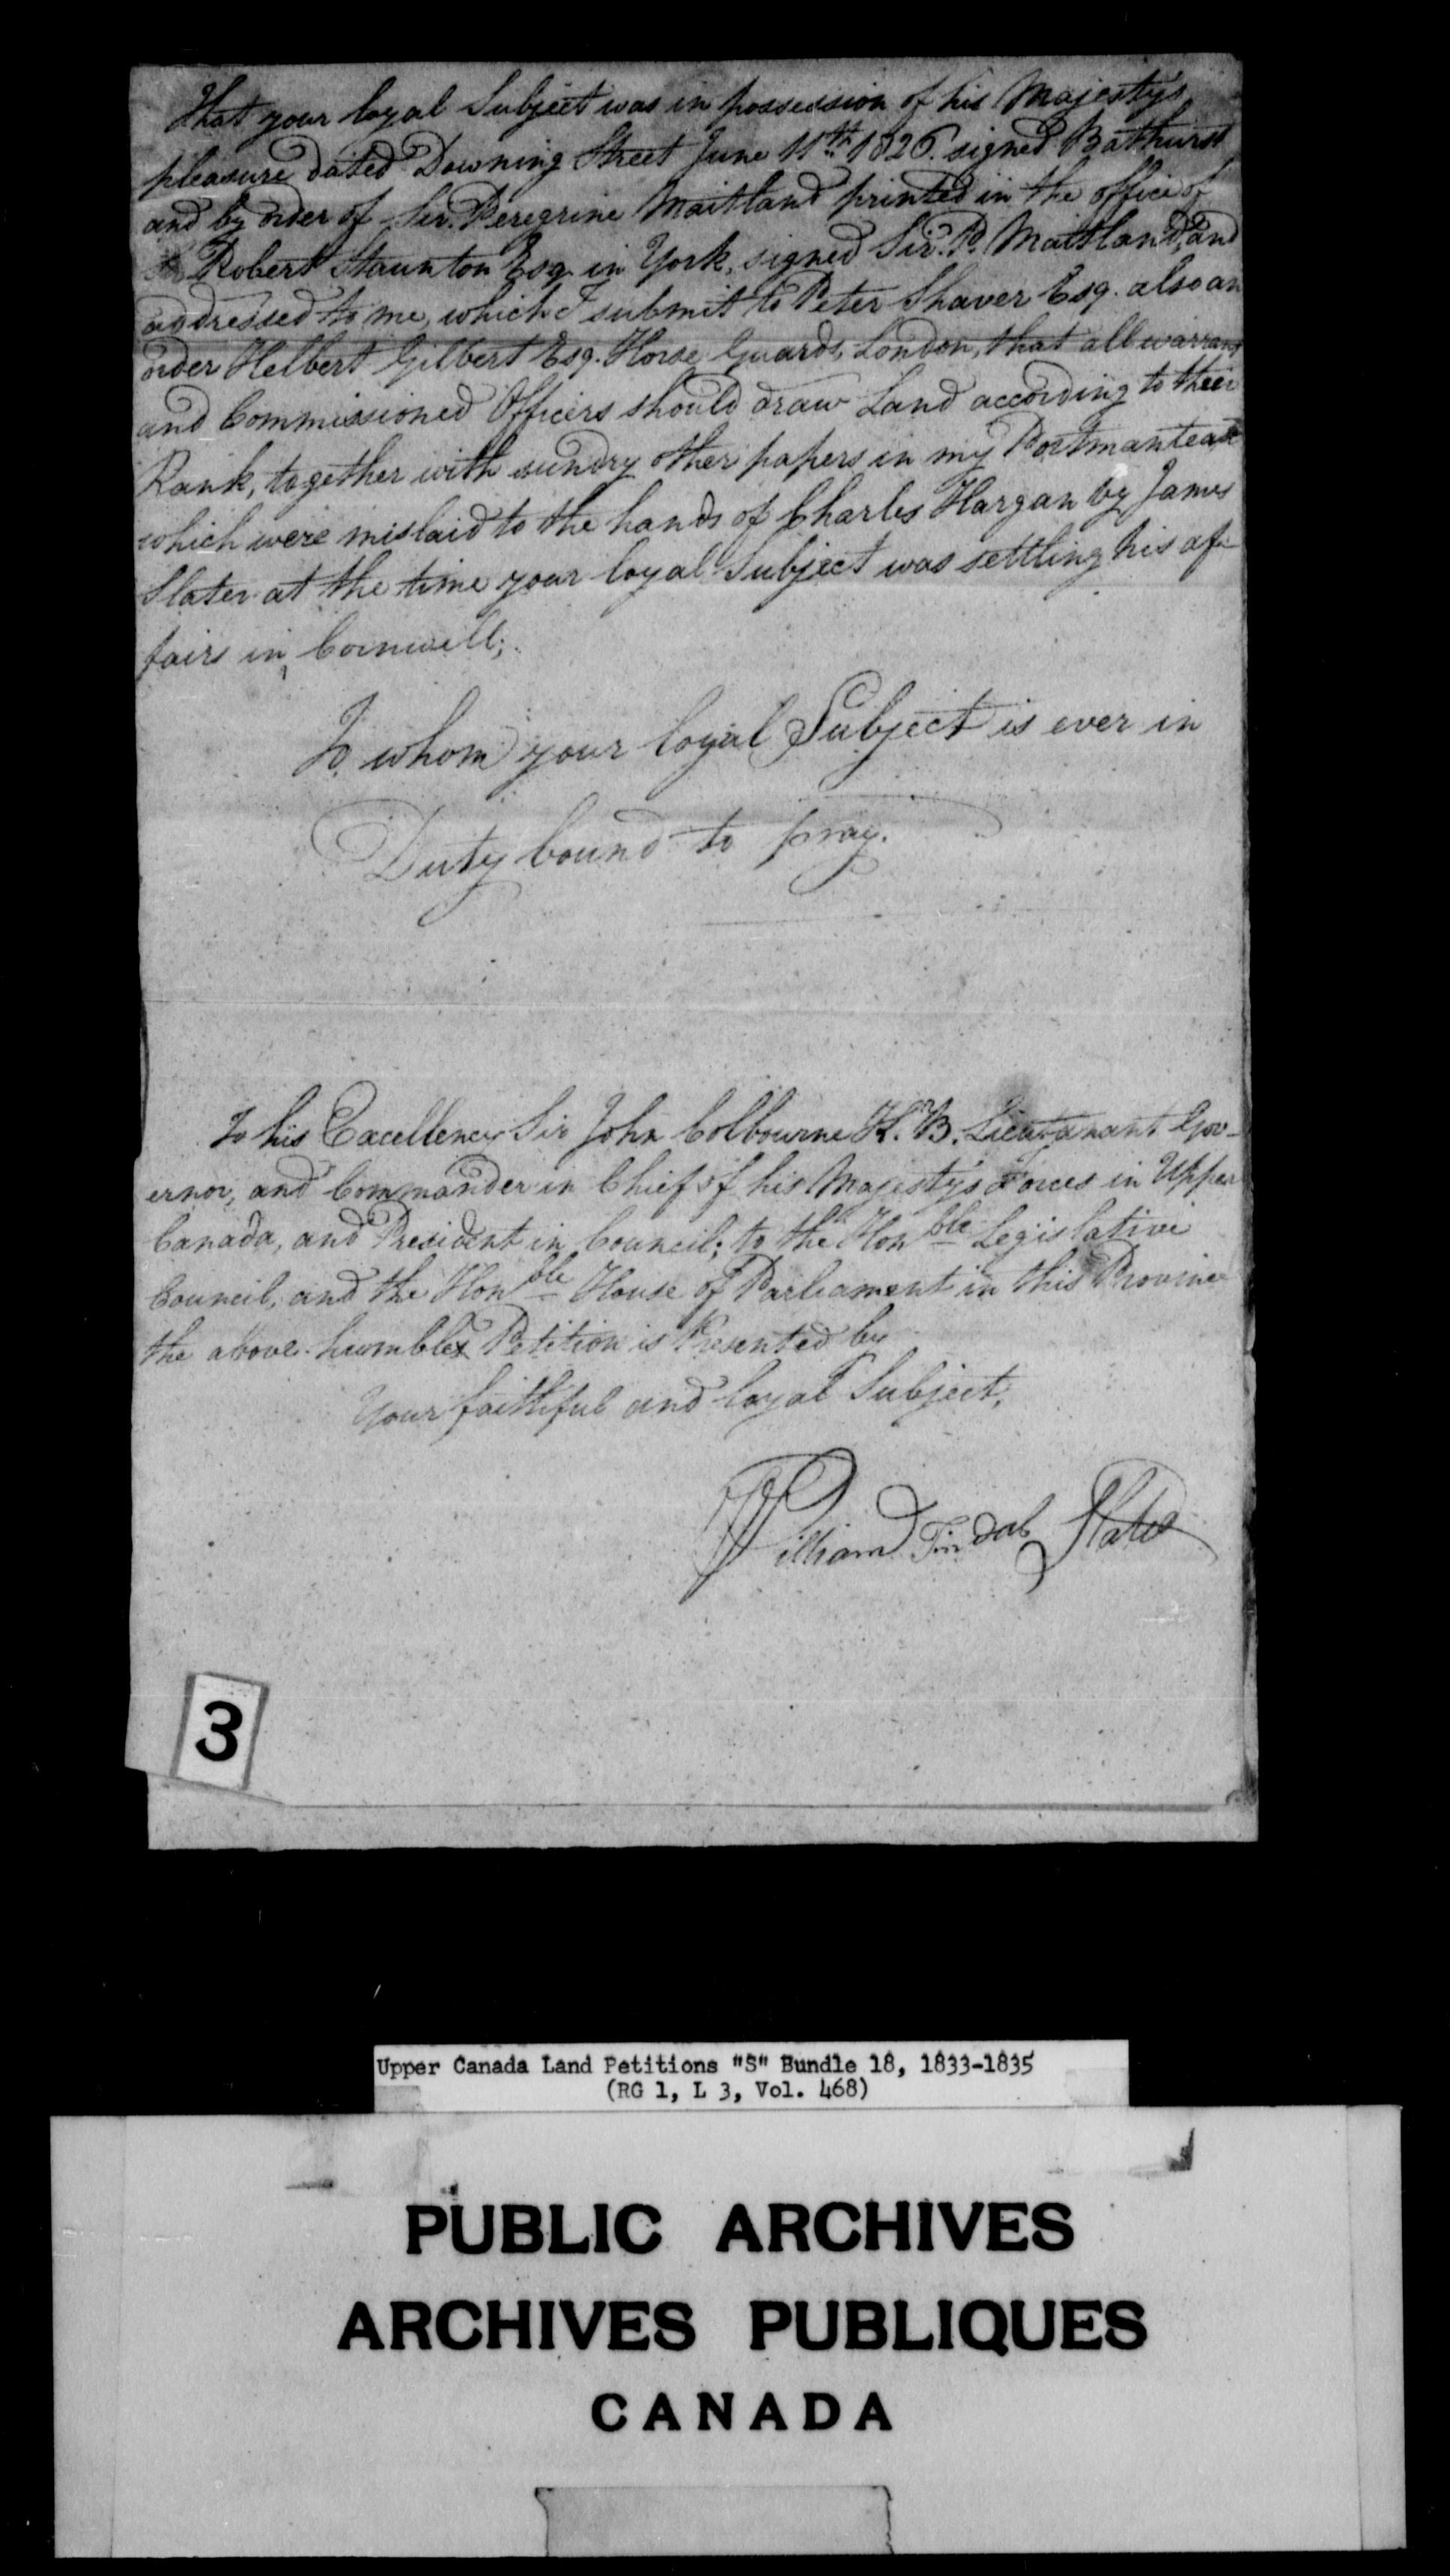 That your loyal Subject was in possession of his Majestys
pleasure dated Downing Street June 11th 1826. signed Bathurst
and by order of Sir. Peregrine Maitland printed in the office of
Robert Staunton Esq. in York, signed Sir. P. Maitland, and
addressed to me, which I submit to Peter Shaver Esq. also an
order Helbert Gilbert Esq. Horse Guards, London, that all warrant
and Commissioned Officers should draw Land according to their
Rank, together with sundry other papers in my Portmanteau
which were mislaid to the hands of Charles Hargan by James
Slater at the time your loyal Subject was settling his af-
fairs in Cornwall;
To whom your loyal Subject is ever in
Duty bound to pray.
To his Excellency Sir John Colbourne K. B. Lieutanant Gov-
ernor, and Commander in Chief of his Majesty's Forces in Upper
Canada, and President in Council; to the Honble Legislative
Council, and the Honble House of Parliament in this Province
the above humble Petition is Presented by
Your faithful and loyal Subject,
William Tindal Slater
3
Upper Canada Land Petitions "S" Bundle 18, 1833-1835
(RG 1, L 3, Vol. 468)
PUBLIC ARCHIVES
ARCHIVES PUBLIQUES
CANADA